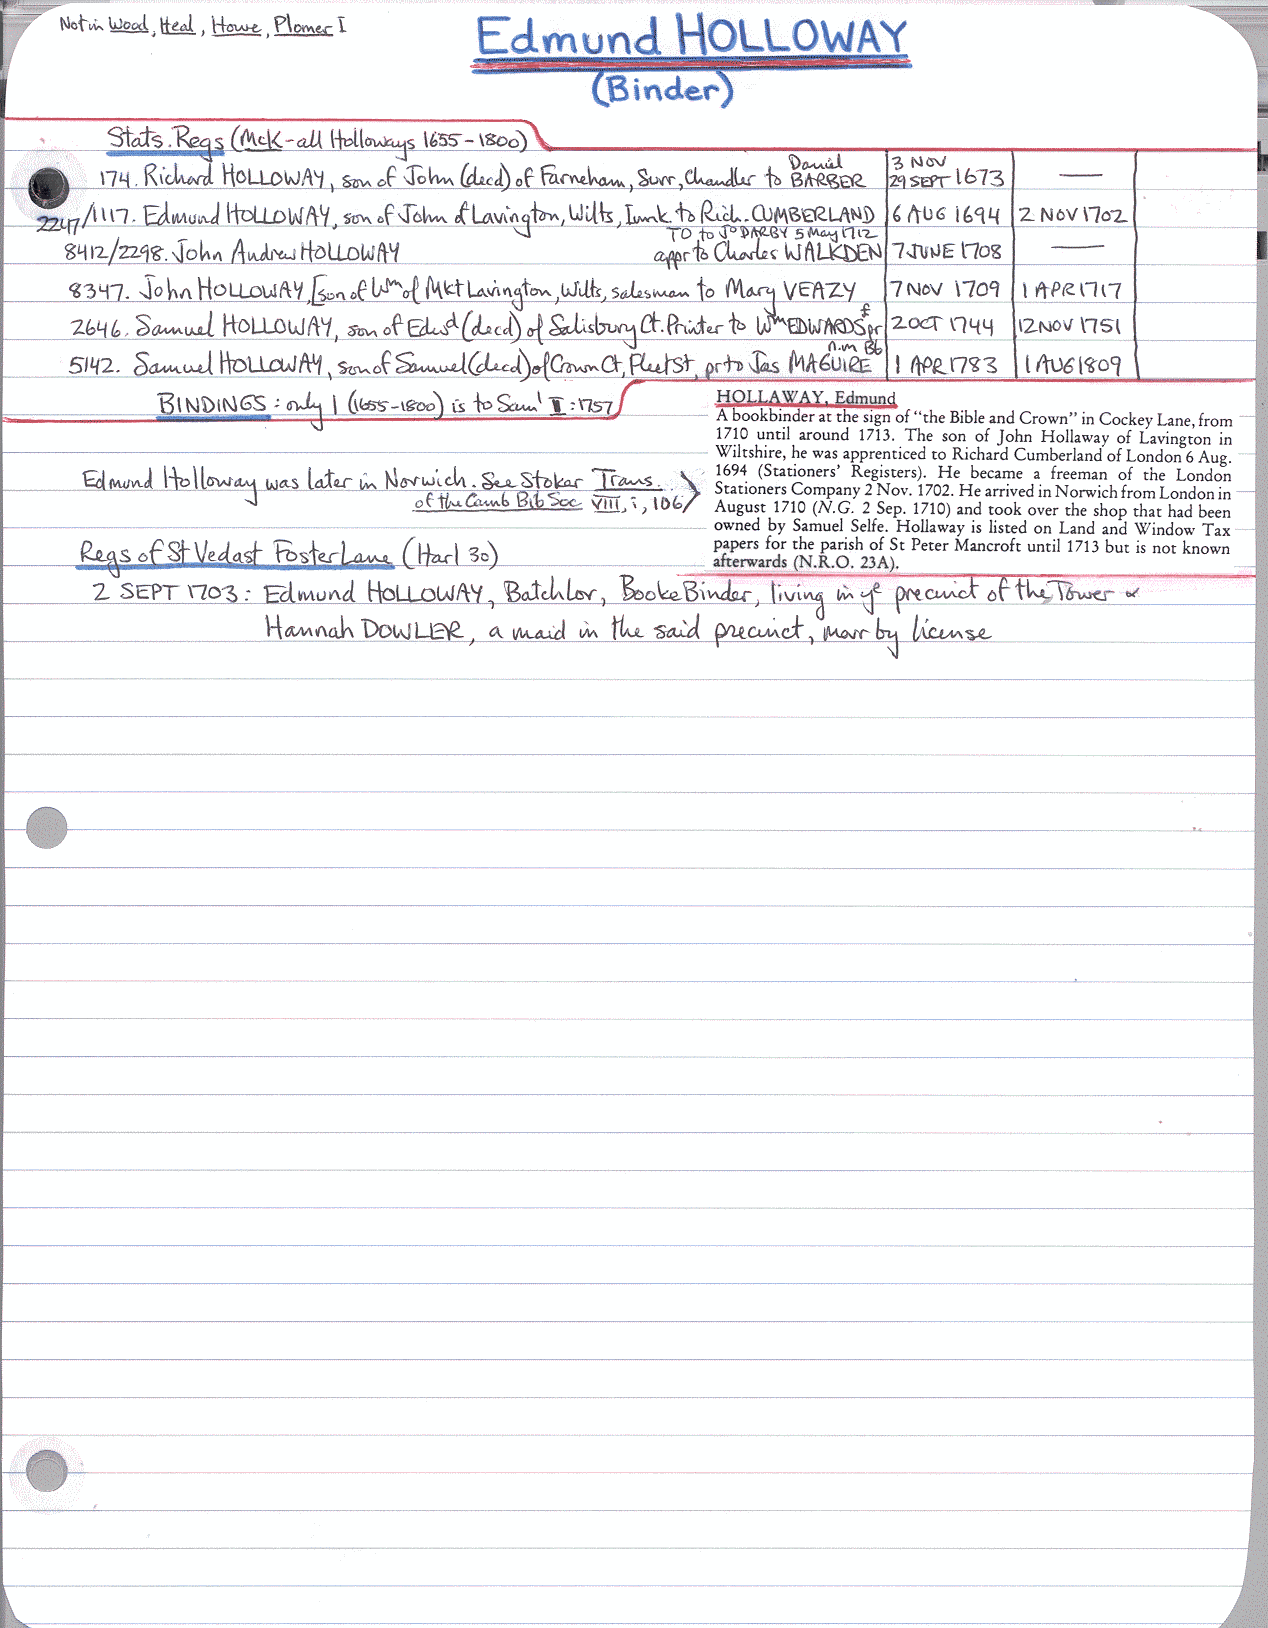 Not in Wood, Heal, Howe, Plomer I
Edmund HOLLOWAY
(Binder)
Stats. Regs (McK - all Holloways 1655-1800)
174. Richard HOLLOWAY, son of John (decd) of Farneham, Surr, Chandler to Daniel BARBER 3 NOV 29 SEPT 1673 —
2247/1117. Edmund HOLLOWAY, son of John of Lavington, Wilts, Innk to Rich. CUMBERLAND 6 AUG 1694 2 NOV 1702
TO to Jº DARBY 5 May 1712
8412/2298. John Andrew HOLLOWAY appr to Charles WALKDEN 7 JUNE 1708 —
8347. John HOLLOWAY, [son of Wm of Mkt Lavington, Wilts, salesman to Mary VEAZY 7 NOV 1709 1 APR 1717
2646. Samuel HOLLOWAY, son of Edwd (decd) of Salisbury Ct. Printer to Wm EDWARDS f pr 2 OCT 1744 12 NOV 1751
n.m Bb
5142. Samuel HOLLOWAY, son of Samuel (decd) of Crown Ct, Fleet St, pr to Jas MAGUIRE 1 APR 1783 1 AUG 1809
BINDINGS: only 1 (1655-1800) is to Saml II: 1757
HOLLAWAY, Edmund
A bookbinder at the sign of “the Bible and Crown” in Cockey Lane, from
1710 until around 1713. The son of John Hollaway of Lavington in
Wiltshire, he was apprenticed to Richard Cumberland of London 6 Aug.
1694 (Stationers’ Registers). He became a freeman of the London
Stationers Company 2 Nov. 1702. He arrived in Norwich from London in
August 1710 (N.G. 2 Sep. 1710) and took over the shop that had been
owned by Samuel Selfe. Hollaway is listed on Land and Window Tax
papers for the parish of St Peter Mancroft until 1713 but is not known
afterwards (N.R.O. 23A).
Edmund Holloway was later in Norwich. See Stoker Trans.
of the Camb Bib Soc VIII, i, 106
Regs of St Vedast Foster Lane (Harl 30)
2 SEPT 1703: Edmund HOLLOWAY, Batchlor, Booke Binder, living in ye precinct of the Tower &
Hannah DOWLER, a maid in the said precinct, marr by license